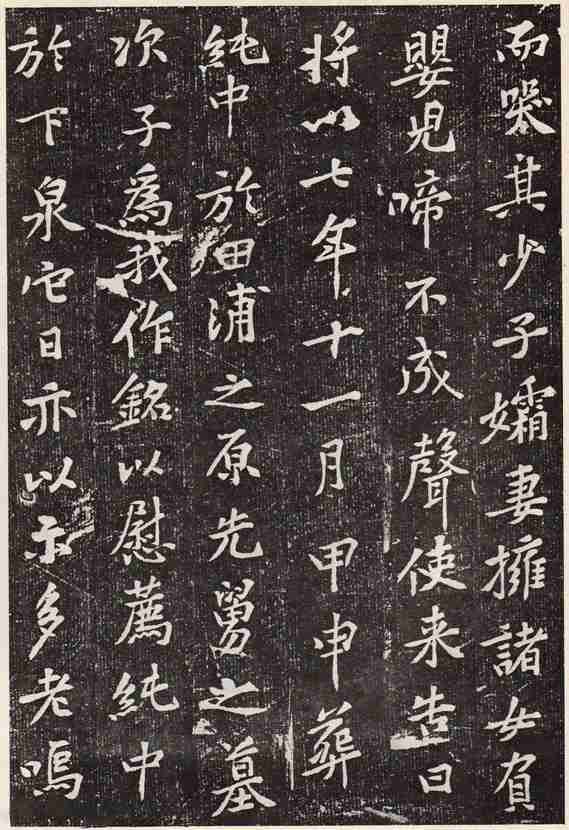 而哭其少子孀妻擁諸女負
嬰兒啼不成聲使来告曰
將以七年十一月甲申葬
純中於田浦之原先舅之墓
次子為我作銘以慰薦純中
於下泉它日亦以示多老嗚